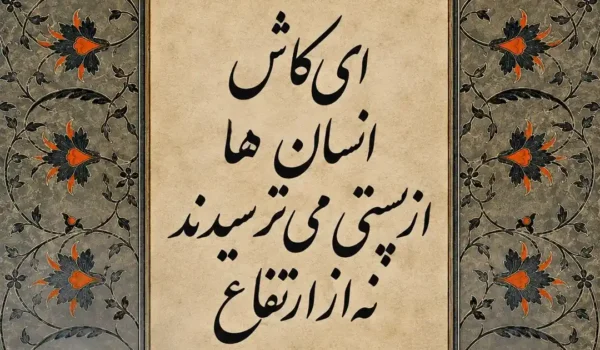 ای کاش
انسان ها
از پستی می ترسیدند
نه از ارتفاع